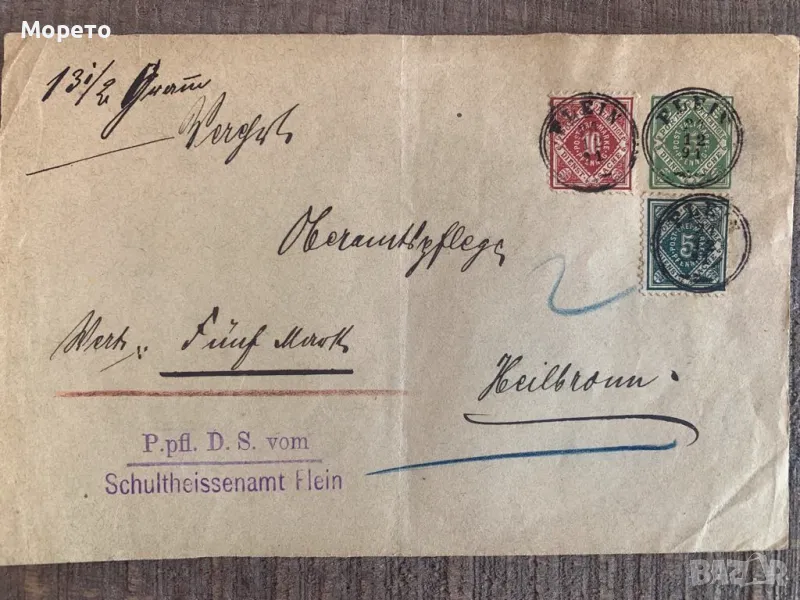 Морето
13 1/2 Gram
Oberamtspflege
Wert: Fünf Mark
Heilbronn.
P.pfl. D. S. vom
Schultheissenamt Flein
FLEIN
10
FLEIN
12
FLEIN
5
BAZAR